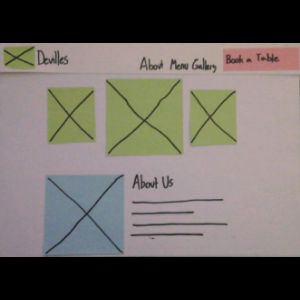 Devilles
About Menu Gallery
Book a Table
About Us